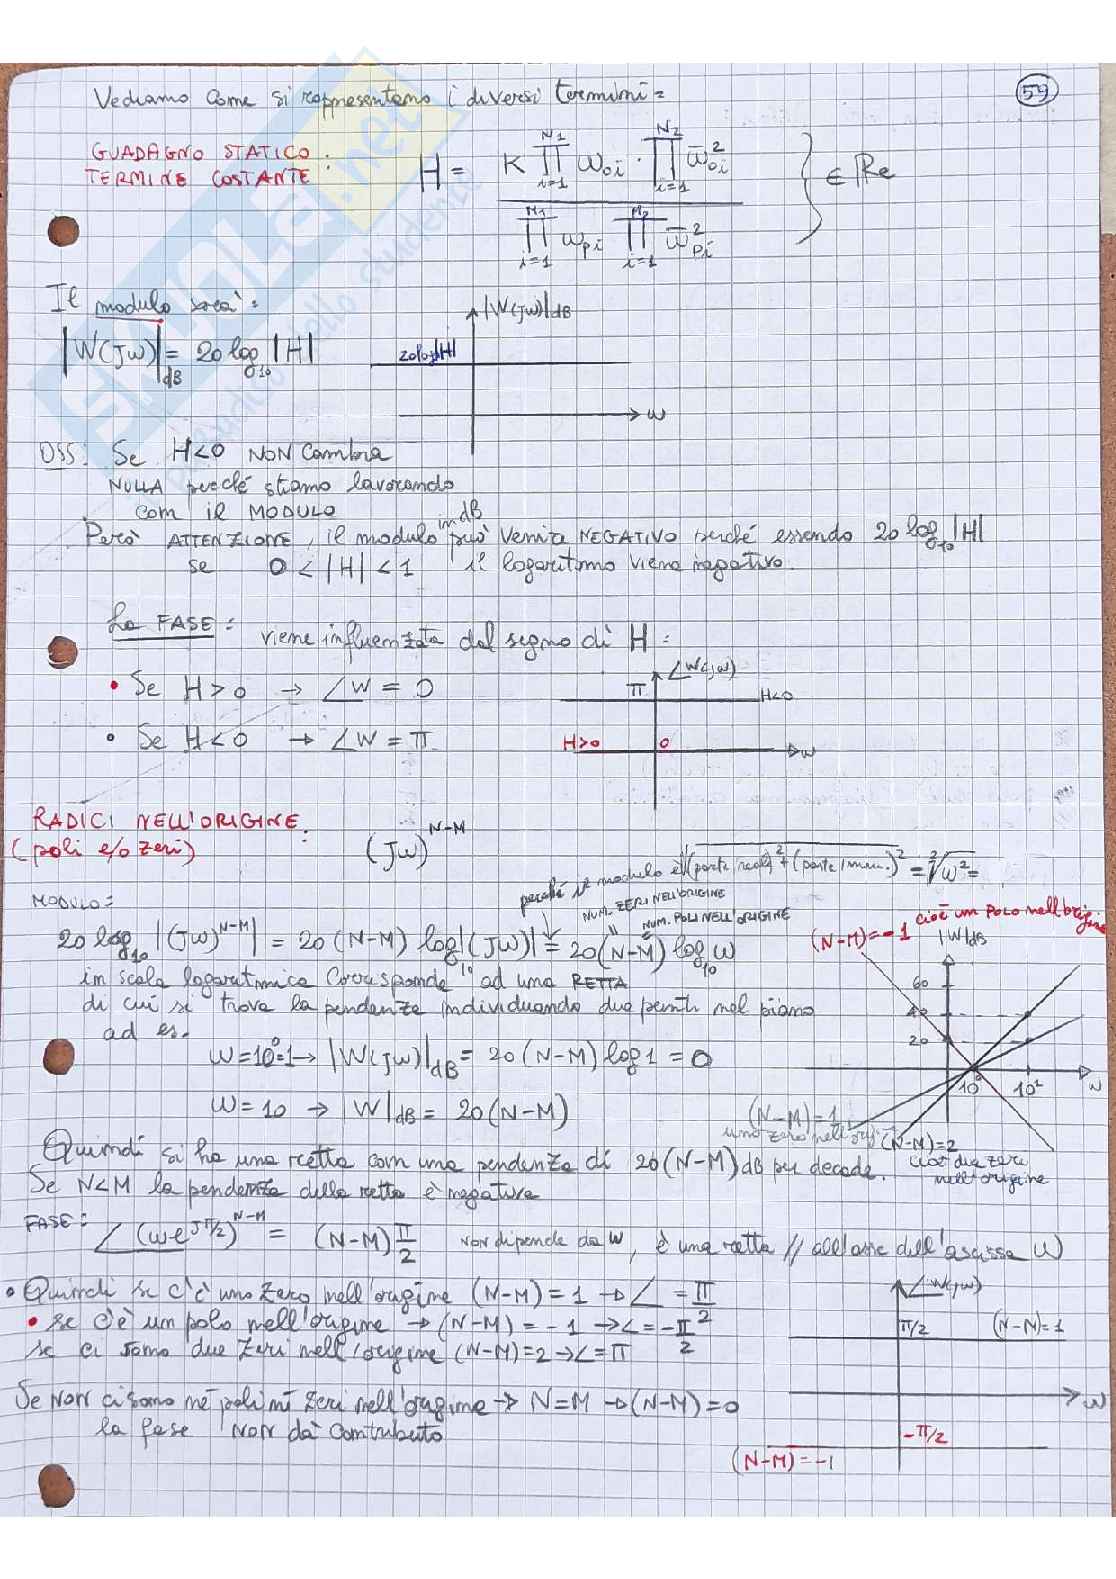 Vediamo come si rappresentano i diversi termini: 59
GUADAGNO STATICO
TERMINE COSTANTE :
H = K ∏_{i=1}^{N1} ω_{oi} · ∏_{i=1}^{N2} ω̄²_{oi} / ∏_{i=1}^{M1} ω_{pi} ∏_{i=1}^{M2} ω̄²_{pi} } ∈ Re
Il modulo sarà:
|W(Jω)|dB = 20 log10 |H|
|W(Jω)|dB
20log|H|
ω
OSS: Se H<0 NON cambia
NULLA perché stiamo lavorando
com il MODULO
Però ATTENZIONE, il modulo in dB può venire NEGATIVO perché essendo 20 log10 |H|
se 0 < |H| < 1 il logaritmo viene negativo.
La FASE: viene influenzata dal segno di H:
• Se H > 0 → ∠W = 0
• Se H < 0 → ∠W = π
∠W(jω)
π H<0
H>0 0 ω
RADICI NELL'ORIGINE:
(poli e/o zeri) (Jω)^{N-M}
perché il modulo è √(parte reale)² + (parte imm.)² = ²√ω² =
MODULO:
NUM. ZERI NELL'ORIGINE
NUM. POLI NELL'ORIGINE
20 log10 |(Jω)^{N-M}| = 20 (N-M) log10 |(Jω)| = 20 (N-M) log10 ω
in scala logaritmica corrisponde ad una RETTA
di cui si trova la pendenza individuando due punti nel piano
ad es.
ω=10⁰=1 → |W(Jω)|dB = 20 (N-M) log 1 = 0
ω = 10 → |W|dB = 20 (N-M)
(N-M) = -1 cioè un POLO nell'origine
|W|dB
60
40
20
10⁰ 10² ω
(N-M) = 1
uno zero nell'orig.
(N-M) = 2
cioè due zeri
nell'origine
Quindi si ha una retta con una pendenza di 20 (N-M) dB per decade.
Se N<M la pendenza della retta è negativa
FASE: ∠(ω e^{Jπ/2})^{N-M} = (N-M) π/2 non dipende da ω, è una retta // all'asse dell'ascissa ω
• Quindi se c'è uno zero nell'origine (N-M) = 1 → ∠ = π/2
• se c'è un polo nell'origine → (N-M) = -1 → ∠ = -π/2
se ci sono due zeri nell'origine (N-M) = 2 → ∠ = π
Se NON ci sono né poli né zeri nell'origine → N = M → (N-M) = 0
la fase NON dà contributo
∠W(jω)
π/2 (N-M) = 1
ω
-π/2
(N-M) = -1